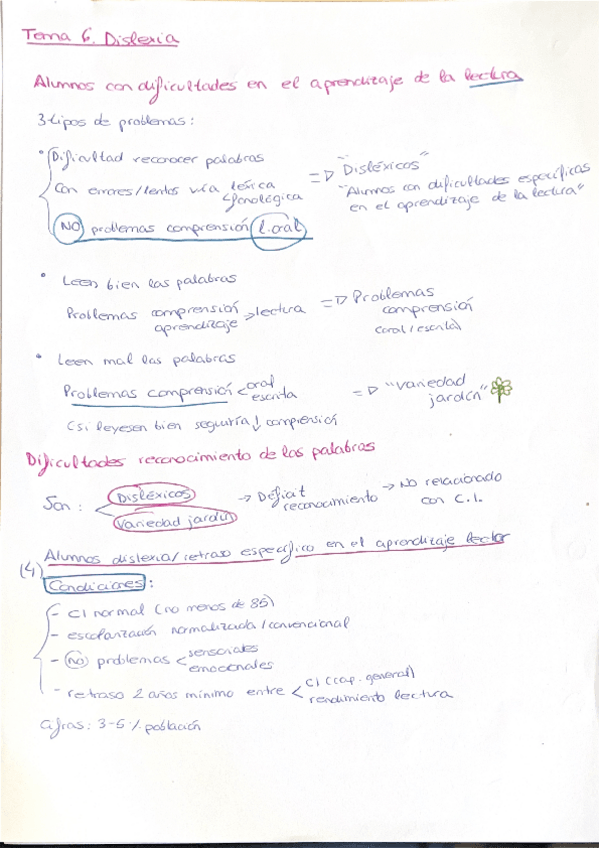 Tema 6. Dislexia
Alumnos con dificultades en el aprendizaje de la lectura
3 tipos de problemas:
• Dificultad reconocer palabras
Con errores/lentos vía < léxica
fonológica
NO problemas comprensión l.oral
=> "Disléxicos"
"Alumnos con dificultades específicas
en el aprendizaje de la lectura"
• Leen bien las palabras
Problemas comprensión
aprendizaje > lectura
=> Problemas
comprensión
(oral/escrita)
• Leen mal las palabras
Problemas comprensión < oral
escrita
=> "Variedad
jardín"
(si leyesen bien seguiría ↓ comprensión
Dificultades reconocimiento de las palabras
Son: < Disléxicos
Variedad jardín
→ Déficit
reconocimiento
→ No relacionado
con C.I.
Alumnos dislexia/retraso específico en el aprendizaje lector
(4)
Condiciones:
- CI normal (no menos de 85)
- escolarización normalizada/convencional
- NO problemas < sensoriales
emocionales
- retraso 2 años mínimo entre < CI (cap. general)
rendimiento lectura
Cifras: 3-5 % población